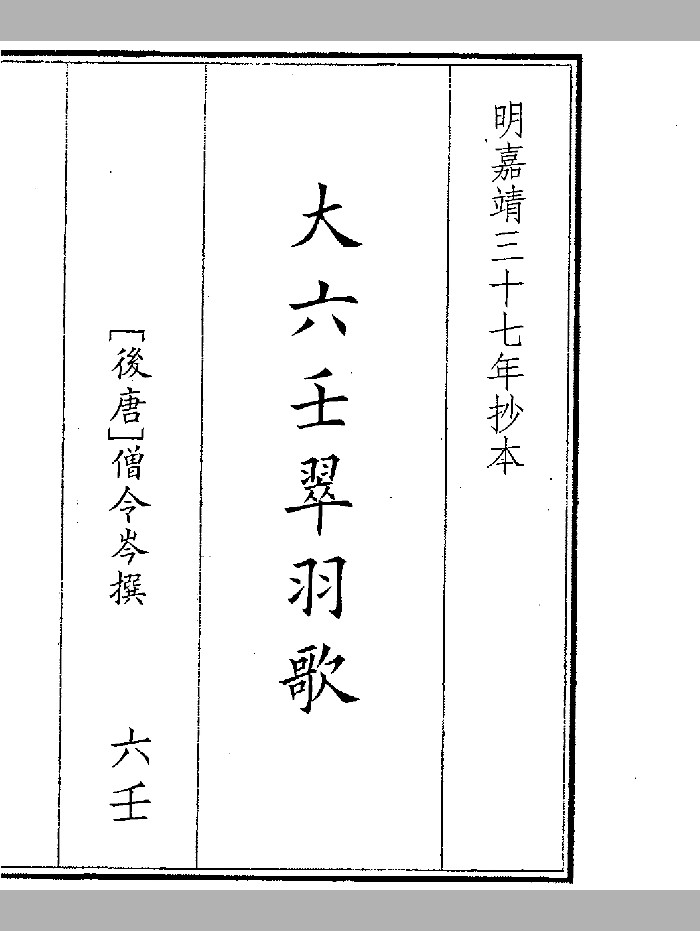 明嘉靖三十七年抄本
大六壬翠羽歌
[後唐]僧令岑撰 六壬